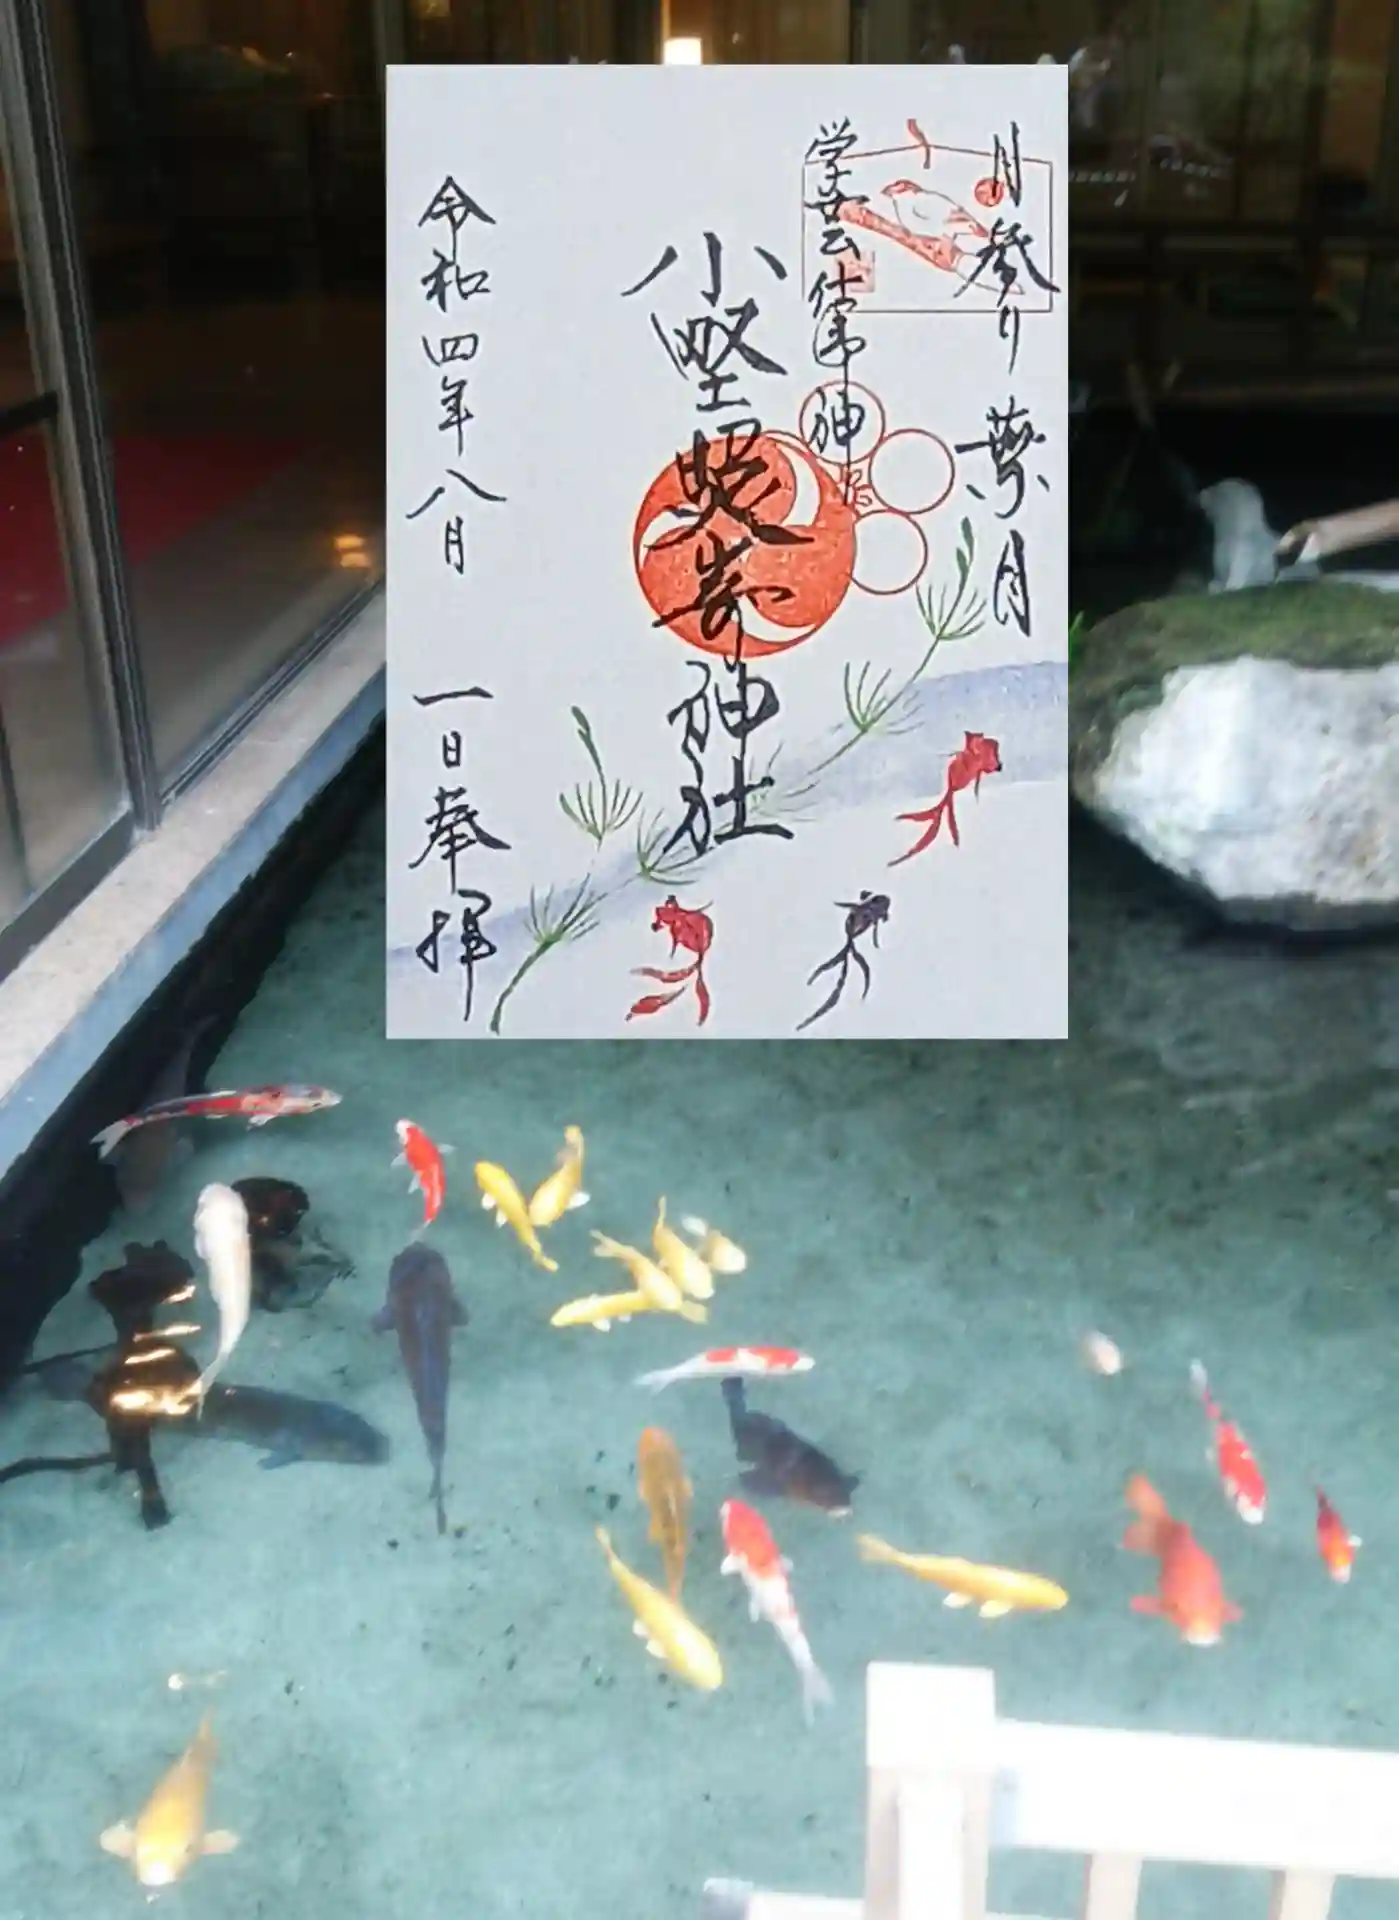 月参り 葉月
学芸仕事神
小野照崎神社
令和四年八月 一日奉拝